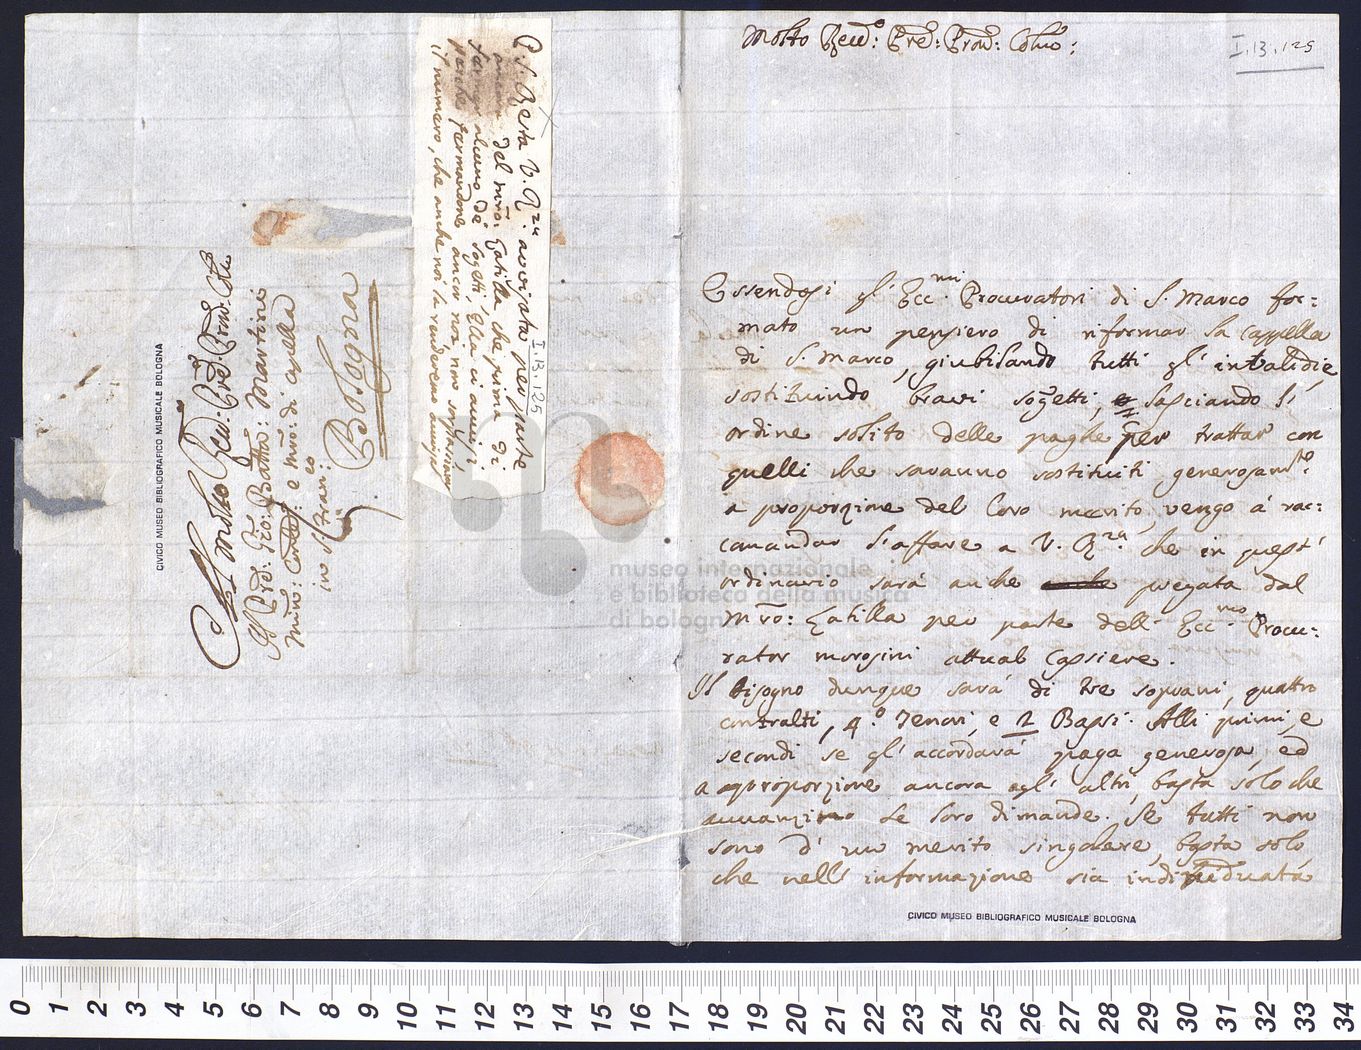 Molto Revdo: Pre: Pron: Colmo:
I.13.125
Essendosi gl' Eccmi Procuratori di S. Marco for=
mato un pensiero di riformar la cappella
di S. Marco, giubilando tutti gl' invalidi, e
sostituindo bravi soggetti, e lasciando l'
ordine solito delle paghe per trattar con
quelli che saranno sostituiti generosamte
a proporzione del loro merito, vengo à rac=
comandar l'affare a V. Rza che in quest'
ordinario sarà anche pregata dal
Mro: Latilla per parte dell' Eccmo Procu=
rator Morosini attual Cassiere.
Il bisogno dunque sarà di tre soprani, quattro
contralti, 4.o Tenori, e 2 Bassi. Alli primi, e
secondi se gl' accorderà paga generosa, ed
a approporzione ancora agl' altri, basta solo che
avvanzino le loro dimande. Se tutti non
sono d' un merito singolare, basta solo,
che nell' informazione sia individuata
CIVICO MUSEO BIBLIOGRAFICO MUSICALE BOLOGNA
P.S. Resta V. Rza avvisata per parte
ancora del Mro: Latilla che prima di
fermar alcuno de' sogetti, Ella ci avvisi,
perchè fermandone ancor noi non soprasciam
il numero, che anche noi le renderemo
I.13.125
Al molto Revdo: Pre: Pron: Colmo
Il Pre: Gio: Batta: Martini
Mro: e Mro: di capella
in S. Fran:co
Bologna
CIVICO MUSEO BIBLIOGRAFICO MUSICALE BOLOGNA
museo internazionale
e biblioteca della musica
di bologna
0 1 2 3 4 5 6 7 8 9 10 11 12 13 14 15 16 17 18 19 20 21 22 23 24 25 26 27 28 29 30 31 32 33 34